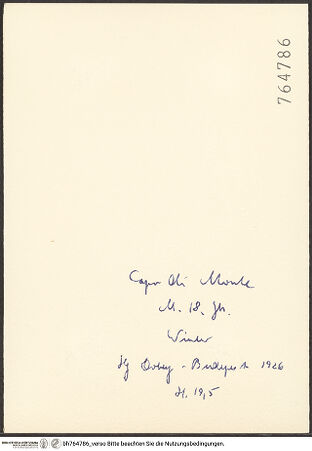 764786
Capo di Monte
M. 18. Jh.
Winter
Budapest 1926
H. 19,5
bh764786_verso Bitte beachten Sie die Nutzungsbedingungen.